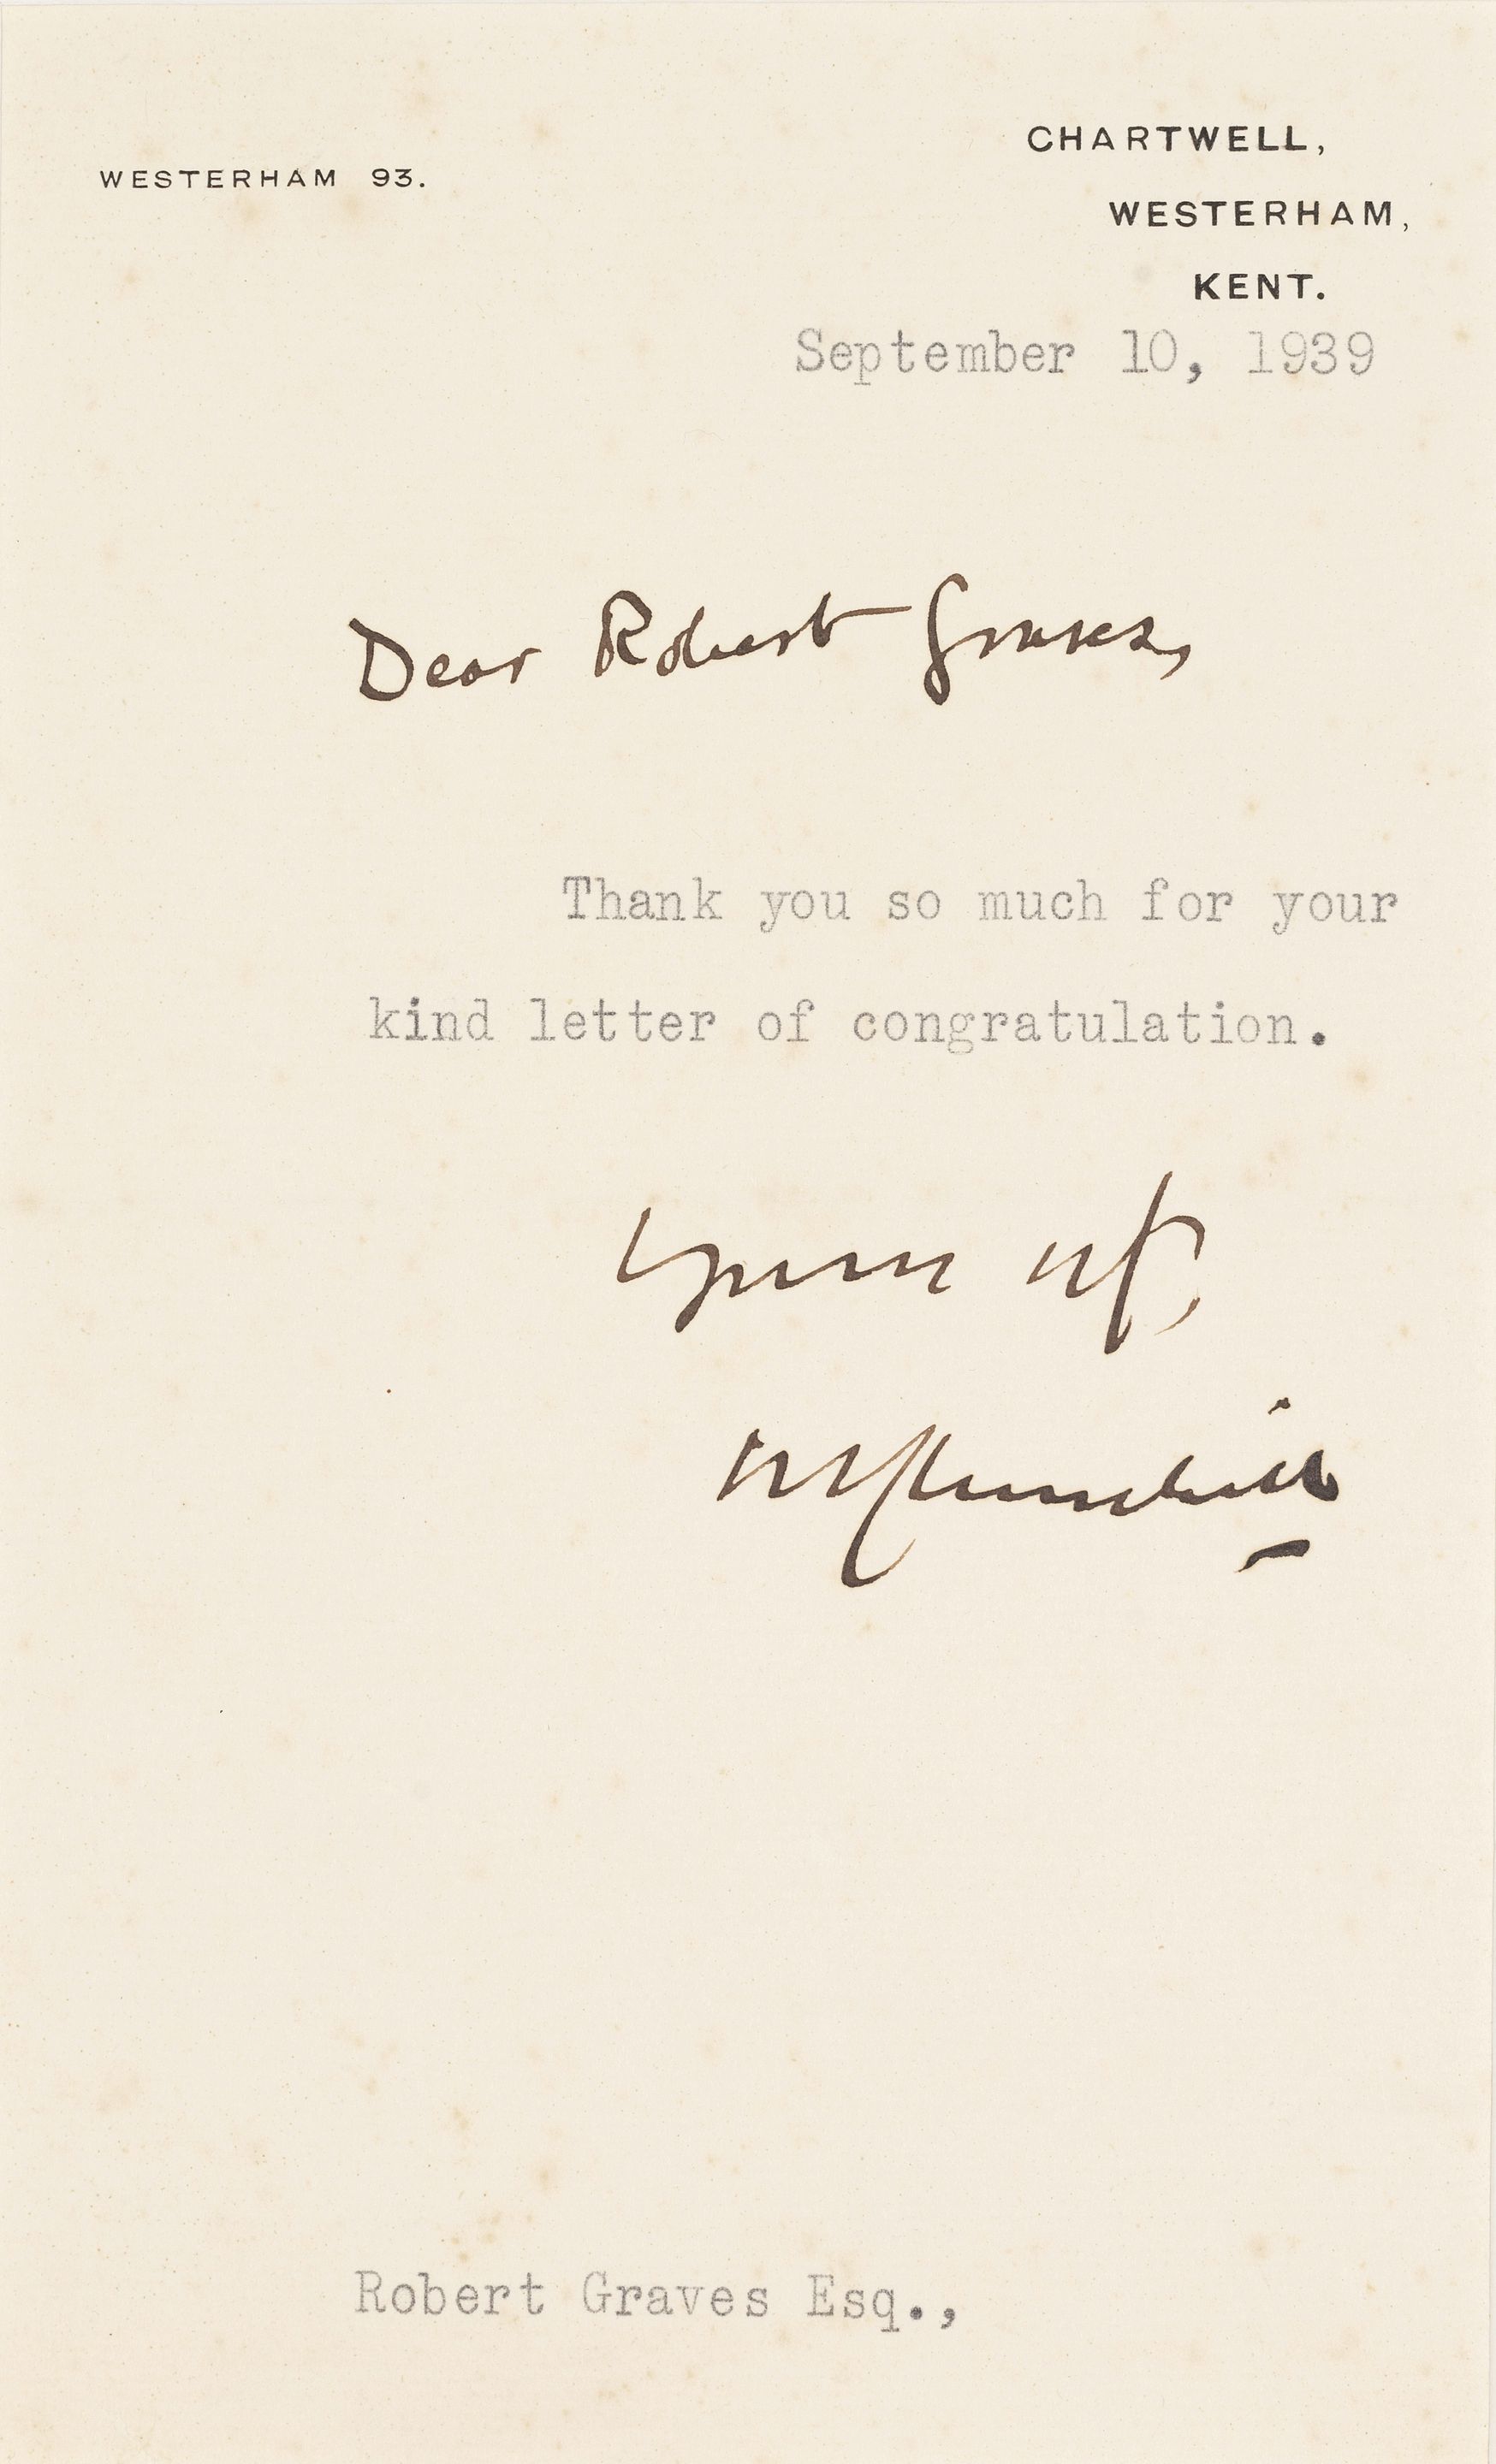 WESTERHAM 93.
CHARTWELL,
WESTERHAM,
KENT.
September 10, 1939
Dear Robert Graves,
Thank you so much for your
kind letter of congratulation.
Yours
W Churchill
Robert Graves Esq.,